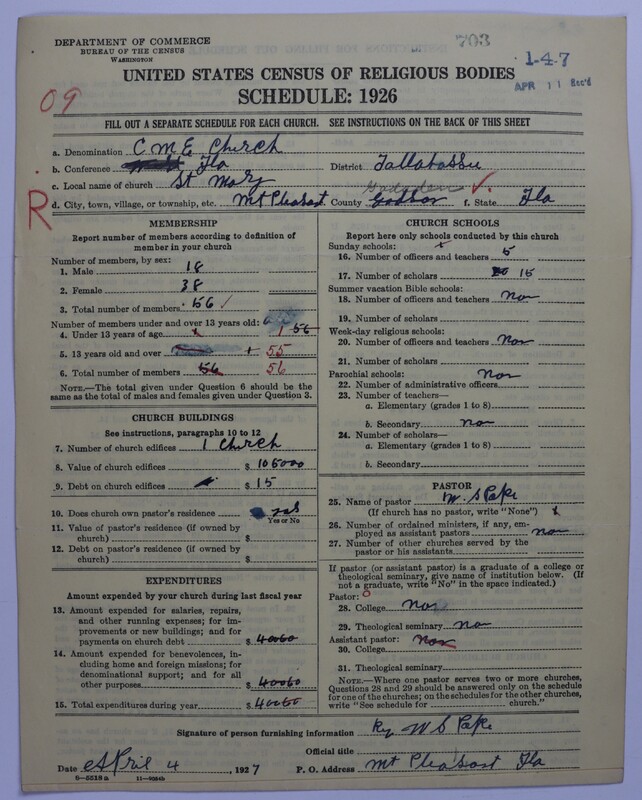 DEPARTMENT OF COMMERCE
BUREAU OF THE CENSUS
WASHINGTON
703
1-4-7
APR 11 Rec'd
UNITED STATES CENSUS OF RELIGIOUS BODIES
SCHEDULE: 1926
09
FILL OUT A SEPARATE SCHEDULE FOR EACH CHURCH. SEE INSTRUCTIONS ON THE BACK OF THIS SHEET
a. Denomination C M E Church
b. Conference Fla District Tallahassu
c. Local name of church St Mary
Gadsden
d. City, town, village, or township, etc. Mt Pleasant County f. State Fla
R
MEMBERSHIP
Report number of members according to definition of
member in your church
Number of members, by sex:
1. Male 18
2. Female 38
3. Total number of members 56
Number of members under and over 13 years old:
4. Under 13 years of age 1 56
5. 13 years old and over 55
6. Total number of members 56 56
NOTE.—The total given under Question 6 should be the
same as the total of males and females given under Question 3.
CHURCH BUILDINGS
See instructions, paragraphs 10 to 12
7. Number of church edifices 1 Church
8. Value of church edifices $ 105000
9. Debt on church edifices $ 15
10. Does church own pastor's residence
Yes or No
11. Value of pastor's residence (if owned by
church) $
12. Debt on pastor's residence (if owned by
church) $
EXPENDITURES
Amount expended by your church during last fiscal year
13. Amount expended for salaries, repairs,
and other running expenses; for im-
provements or new buildings; and for
payments on church debt $ 40060
14. Amount expended for benevolences, in-
cluding home and foreign missions; for
denominational support; and for all
other purposes $ 40060
15. Total expenditures during year $ 40060
CHURCH SCHOOLS
Report here only schools conducted by this church
Sunday schools:
16. Number of officers and teachers 5
17. Number of scholars 15
Summer vacation Bible schools:
18. Number of officers and teachers Non
19. Number of scholars
Week-day religious schools:
20. Number of officers and teachers Non
21. Number of scholars
Parochial schools: Non
22. Number of administrative officers
23. Number of teachers—
a. Elementary (grades 1 to 8)
b. Secondary Non
24. Number of scholars—
a. Elementary (grades 1 to 8)
b. Secondary
PASTOR
25. Name of pastor W. S Pake
(If church has no pastor, write "None")
26. Number of ordained ministers, if any, em-
ployed as assistant pastors non
27. Number of other churches served by the
pastor or his assistants
If pastor (or assistant pastor) is a graduate of a college or
theological seminary, give name of institution below. (If
not a graduate, write "No" in the space indicated.)
Pastor: 0
28. College Non
29. Theological seminary Non
Assistant pastor: Non
30. College
31. Theological seminary
NOTE.—Where one pastor serves two or more churches,
Questions 28 and 29 should be answered only on the schedule
for one of the churches; on the schedules for the other churches,
write "See schedule for church."
Signature of person furnishing information W S Pake
Official title
Date April 4, 1927 P. O. Address Mt Pleasant Fla